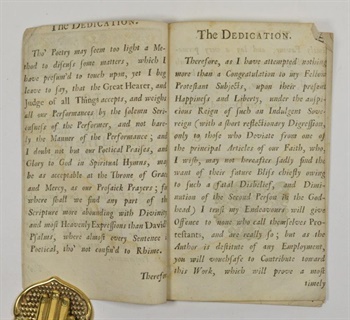 The DEDICATION.
Tho' Poetry may seem too light a Me-
thod to discuss some matters, which I
have presum'd to touch upon, yet I beg
leave to say, that the Great Hearer, and
Judge of all Things accepts, and weighs
all our Performances by the solemn Seri-
ousness of the Performer, and not bare-
ly the Manner of the Performance; and
I doubt not but our Poetical Praises, and
Glory to God in Spiritual Hymns, may
be as acceptable at the Throne of Grace
and Mercy, as our Prosaick Prayers; for
where shall we find any part of the
Scripture more abounding with Divinity
and most Heavenly Expressions than David's
Psalms, where almost every Sentence is
Poetical, tho' not confin'd to Rhime.
Therefore
The DEDICATION.
Therefore, as I have attempted nothing
more than a Congratulation to my Fellow
Protestant Subjects, upon their present
Happiness and Liberty, under the auspi-
cious Reign of such an Indulgent Sove-
reign (with a short reflectionary Digression,
only to those who Deviate from one of
the principal Articles of our Faith, who,
I wish, may not hereafter sadly find the
want of their future Bliss chiefly owing
to such a fatal Disbelief, and Dimi-
nution of the Second Person in the God-
head) I trust my Endeavours will give
Offence to none who call themselves Pro-
testants, and are really so; but as the
Author is destitute of any Employment,
you will vouchsafe to Contribute toward
this Work, which will prove a most
timely